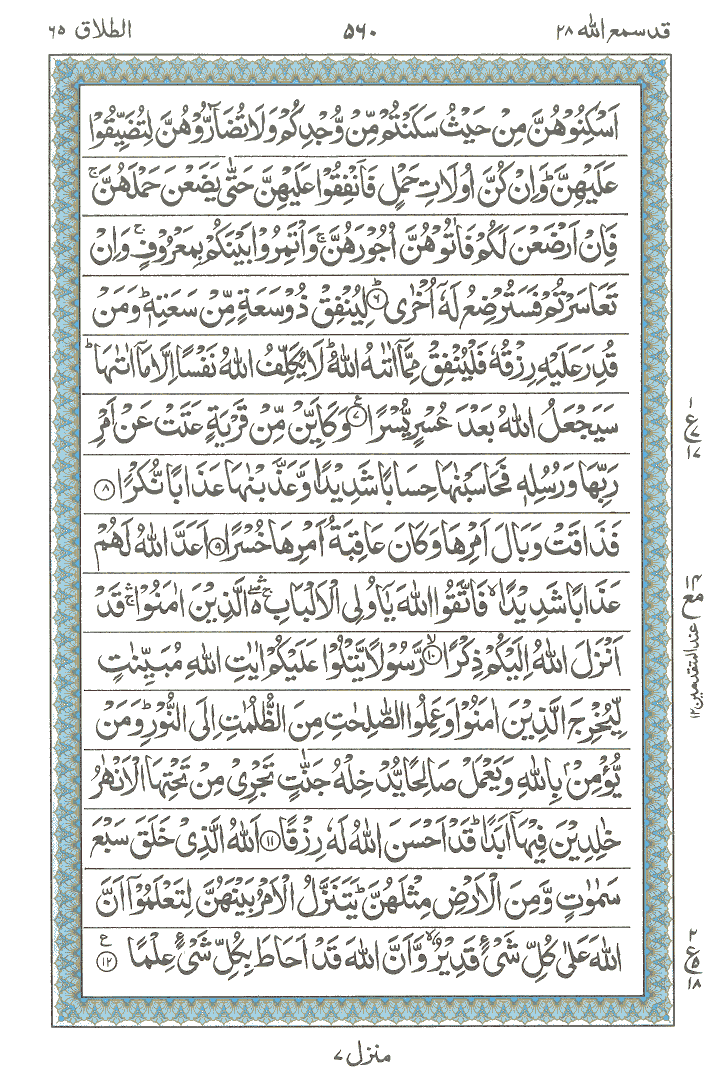 قد سمع الله ۲۸
۵۶۰
الطلاق ۶۵
اَسْكِنُوْهُنَّ مِنْ حَيْثُ سَكَنْتُمْ مِّنْ وُّجْدِكُمْ وَلَا تُضَآرُّوْهُنَّ لِتُضَيِّقُوْا
عَلَيْهِنَّ ؕ وَاِنْ كُنَّ اُولَاتِ حَمْلٍ فَاَنْفِقُوْا عَلَيْهِنَّ حَتّٰى يَضَعْنَ حَمْلَهُنَّ ۚ
فَاِنْ اَرْضَعْنَ لَكُمْ فَاٰتُوْهُنَّ اُجُوْرَهُنَّ ۚ وَاْتَمِرُوْا بَيْنَكُمْ بِمَعْرُوْفٍ ۚ وَاِنْ
تَعَاسَرْتُمْ فَسَتُرْضِعُ لَهٗۤ اُخْرٰى ؕ ۶ لِيُنْفِقْ ذُوْ سَعَةٍ مِّنْ سَعَتِهٖ ؕ وَمَنْ
قُدِرَ عَلَيْهِ رِزْقُهٗ فَلْيُنْفِقْ مِمَّاۤ اٰتٰىهُ اللّٰهُ ؕ لَا يُكَلِّفُ اللّٰهُ نَفْسًا اِلَّا مَاۤ اٰتٰىهَا ؕ
سَيَجْعَلُ اللّٰهُ بَعْدَ عُسْرٍ يُّسْرًا ۷ ع وَكَاَيِّنْ مِّنْ قَرْيَةٍ عَتَتْ عَنْ اَمْرِ
رَبِّهَا وَرُسُلِهٖ فَحَاسَبْنٰهَا حِسَابًا شَدِيْدًا وَّعَذَّبْنٰهَا عَذَابًا نُّكْرًا ۸
فَذَاقَتْ وَبَالَ اَمْرِهَا وَكَانَ عَاقِبَةُ اَمْرِهَا خُسْرًا ۹ اَعَدَّ اللّٰهُ لَهُمْ
عَذَابًا شَدِيْدًا ۙ فَاتَّقُوا اللّٰهَ يٰۤاُولِى الْاَلْبَابِ ۛۚ ۖ الَّذِيْنَ اٰمَنُوْا ۛۚ قَدْ
اَنْزَلَ اللّٰهُ اِلَيْكُمْ ذِكْرًا ۙ ۱۰ رَّسُوْلًا يَّتْلُوْا عَلَيْكُمْ اٰيٰتِ اللّٰهِ مُبَيِّنٰتٍ
لِّيُخْرِجَ الَّذِيْنَ اٰمَنُوْا وَعَمِلُوا الصّٰلِحٰتِ مِنَ الظُّلُمٰتِ اِلَى النُّوْرِ ؕ وَمَنْ
يُّؤْمِنْۢ بِاللّٰهِ وَيَعْمَلْ صَالِحًا يُّدْخِلْهُ جَنّٰتٍ تَجْرِىْ مِنْ تَحْتِهَا الْاَنْهٰرُ
خٰلِدِيْنَ فِيْهَاۤ اَبَدًا ؕ قَدْ اَحْسَنَ اللّٰهُ لَهٗ رِزْقًا ۱۱ اَللّٰهُ الَّذِىْ خَلَقَ سَبْعَ
سَمٰوٰتٍ وَّمِنَ الْاَرْضِ مِثْلَهُنَّ ؕ يَتَنَزَّلُ الْاَمْرُ بَيْنَهُنَّ لِتَعْلَمُوْۤا اَنَّ
اللّٰهَ عَلٰى كُلِّ شَىْءٍ قَدِيْرٌ ۙ وَّاَنَّ اللّٰهَ قَدْ اَحَاطَ بِكُلِّ شَىْءٍ عِلْمًا ۱۲ ع
۱
ع ۷
۱۷
۱۴
مع
عند المتقدمين ۱۲
۲
ع ۵
۱۸
منزل ۷